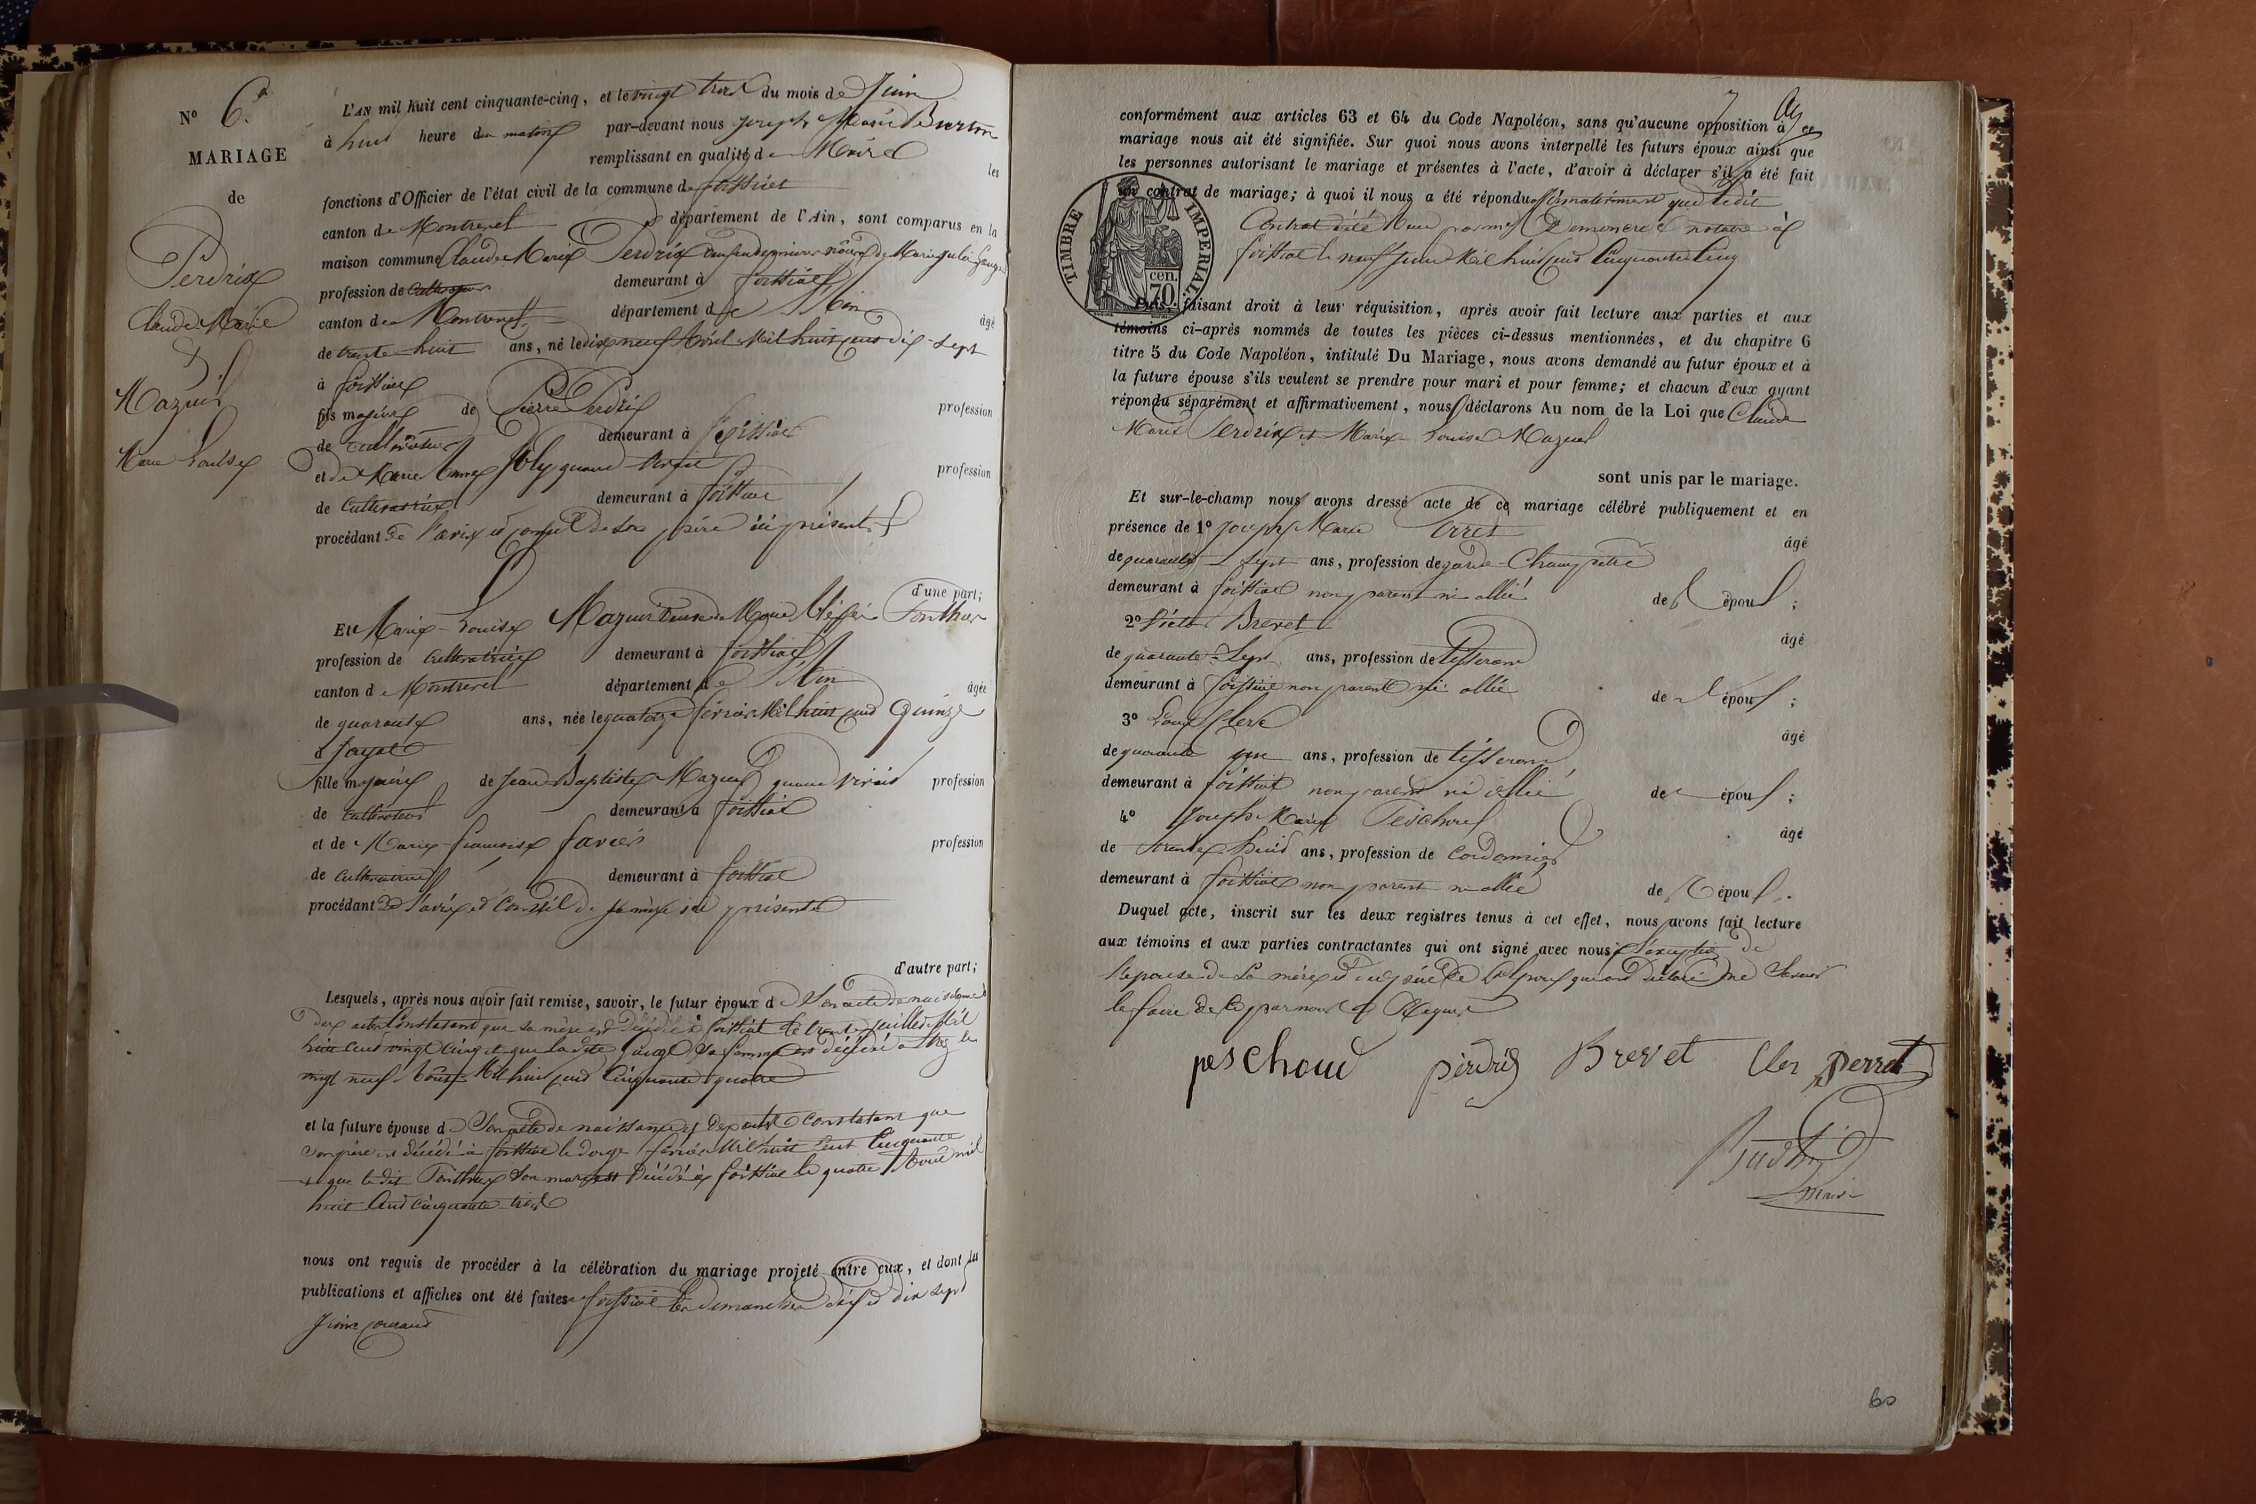 N° 6.
MARIAGE
de
Perdrix
Claude Marie
&
Mazuir
Marie Louise
L'AN mil huit cent cinquante-cinq, et le vingt trois du mois de Juin
à huit heure du matin par-devant nous Joseph Marie
remplissant en qualité de Maire les
fonctions d'Officier de l'état civil de la commune de foissiat
canton de Montrevel département de l'Ain, sont comparus en la
maison commune Claude Marie Perdrix veuf en de Marie
profession de Cultivateur demeurant à foissiat
canton de Montrevel département de l'Ain âgé
de trente huit ans, né le dix neuf Avril Mil huit cent dix-sept
à foissiat
fils majeur de Pierre Perdrix profession
de cultivateur demeurant à foissiat
et de Marie Anne Joly quand vivait profession
de Cultivatrice demeurant à foissiat
procédant de l'avis et conseil de son père ici présent
d'une part;
Et Marie-Louise Mazuir veuve de Marie Ponthus
profession de cultivatrice demeurant à foissiat
canton de Montrevel département de l'Ain âgée
de quarante ans, née le quatorze février Mil huit cent Quinze
à Jayat
fille majeure de Jean Baptiste Mazuir quand vivait profession
de Cultivateur demeurant à foissiat
et de Marie françoise favier profession
de Cultivatrice demeurant à foissiat
procédant de l'avis et Conseil de sa mère ici présente
d'autre part;
Lesquels, après nous avoir fait remise, savoir, le futur époux de Son acte de naissance
Des actes Constatant que sa mère est Décédée à foissiat le trente juillet Mil
huit cent vingt cinq et que ladite sa femme est décédée à le
vingt neuf Août Mil huit cent Cinquante quatre
et la future épouse de Son acte de naissance et Des actes constatant que
son père est décédé à foissiat le douze février Mil huit cent Cinquante
et que le dit Ponthus son mari est Décédé à foissiat le quatre Août mil
huit Cent cinquante trois
nous ont requis de procéder à la célébration du mariage projeté entre eux, et dont les
publications et affiches ont été faites à foissiat les dimanches dix et dix sept
Juin courant
conformément aux articles 63 et 64 du Code Napoléon, sans qu'aucune opposition à ce
mariage nous ait été signifiée. Sur quoi nous avons interpellé les futurs époux ainsi que
les personnes autorisant le mariage et présentes à l'acte, d'avoir à déclarer s'il a été fait
un contrat de mariage; à quoi il nous a été répondu affirmativement que ledit
Contrat a été reçu par me notaire à
foissiat le neuf Juin Mil huit cent Cinquante Cinq
TIMBRE IMPERIAL.
70 cen.
Puis, faisant droit à leur réquisition, après avoir fait lecture aux parties et aux
témoins ci-après nommés de toutes les pièces ci-dessus mentionnées, et du chapitre 6
titre 5 du Code Napoléon, intitulé Du Mariage, nous avons demandé au futur époux et à
la future épouse s'ils veulent se prendre pour mari et pour femme; et chacun d'eux ayant
répondu séparément et affirmativement, nous déclarons Au nom de la Loi que Claude
Marie Perdrix et Marie Louise Mazuir
sont unis par le mariage.
Et sur-le-champ nous avons dressé acte de ce mariage célébré publiquement et en
présence de 1° Joseph Marie Perret âgé
de quarante sept ans, profession de garde-Champêtre
demeurant à foissiat non parent ni allié de l'époux;
2° Brevet âgé
de quarante-Sept ans, profession de tisserand
demeurant à foissiat non parent ni allié de l'époux;
3° Clerc âgé
de quarante un ans, profession de tisserand
demeurant à foissiat non parent ni allié de l'époux;
4° Joseph Marie Peschoud âgé
de trente huit ans, profession de Cordonnier
demeurant à foissiat non parent ni allié de l'époux.
Duquel acte, inscrit sur les deux registres tenus à cet effet, nous avons fait lecture
aux témoins et aux parties contractantes qui ont signé avec nous à l'exception de
l'épouse de sa mère et du père de l'époux qui ont déclaré ne Savoir
le faire de ce par nous Requis
peschoud perdrix Brevet Clerc Perret
Maire
60